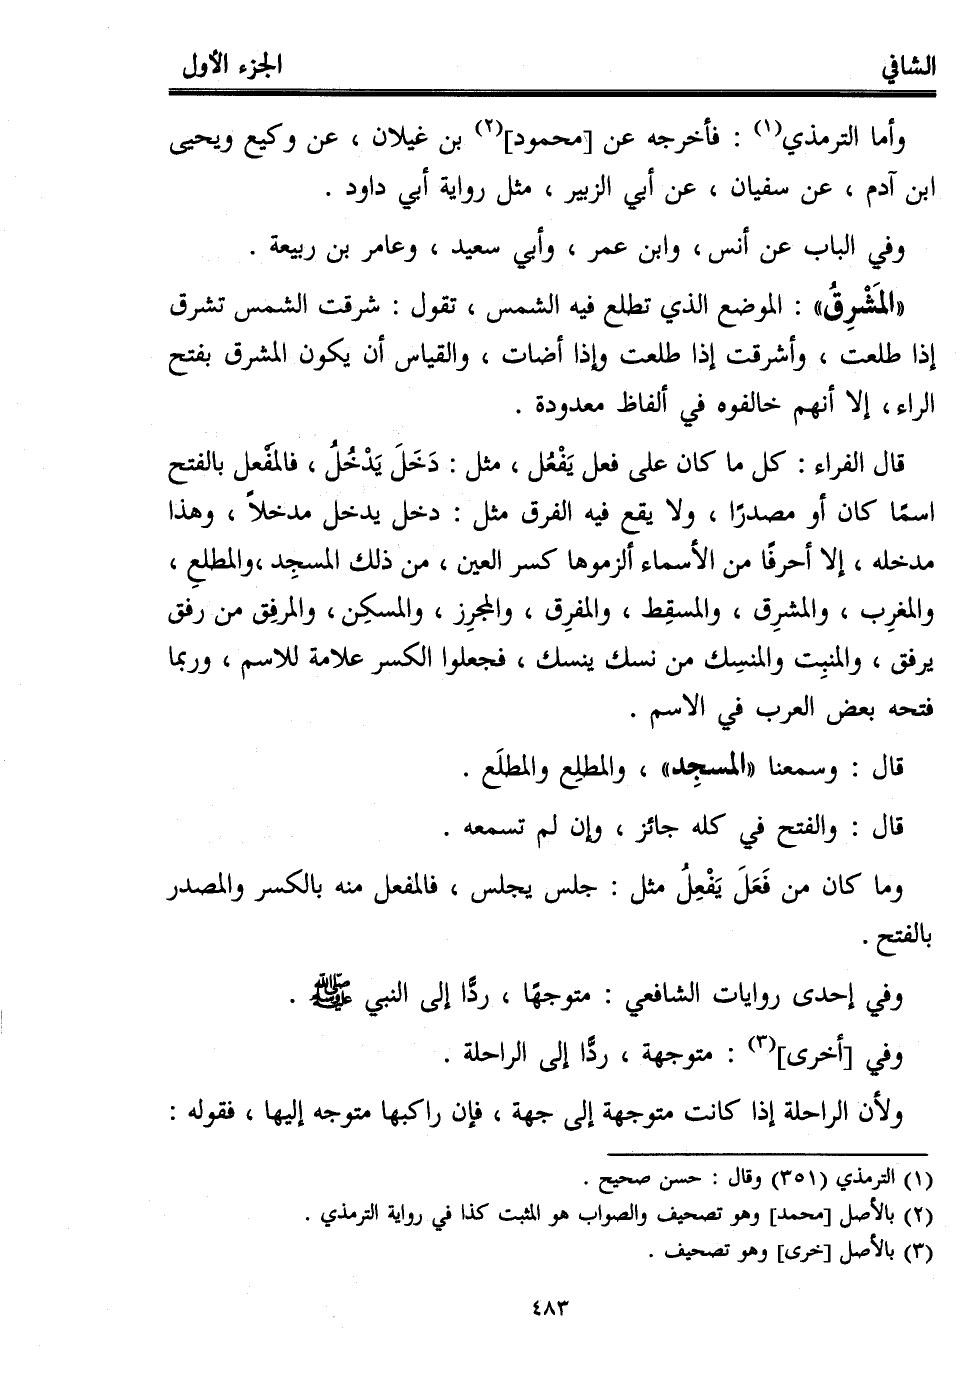 الشافي الجزء الأول
وأما الترمذي(١) : فأخرجه عن [محمود](٢) بن غيلان ، عن وكيع ويحيى
ابن آدم ، عن سفيان ، عن أبي الزبير ، مثل رواية أبي داود .
وفي الباب عن أنس ، وابن عمر ، وأبي سعيد ، وعامر بن ربيعة .
«المَشْرِقُ» : الموضع الذي تطلع فيه الشمس ، تقول : شرقت الشمس تشرق
إذا طلعت ، وأشرقت إذا طلعت وإذا أضات ، والقياس أن يكون المشرق بفتح
الراء ، إلا أنهم خالفوه في ألفاظ معدودة .
قال الفراء : كل ما كان على فعل يَفْعُل ، مثل : دَخَلَ يَدْخُلُ ، فالمَفْعل بالفتح
اسمًا كان أو مصدرًا ، ولا يقع فيه الفرق مثل : دخل يدخل مدخلاً ، وهذا
مدخله ، إلا أحرفًا من الأسماء ألزموها كسر العين ، من ذلك المسجِد ،والمطلعِ ،
والمغرِب ، والمشرِق ، والمسقِط ، والمفرِق ، والمجرِز ، والمسكِن ، والمرفِق من رفق
يرفق ، والمنبِت والمنسِك من نسك ينسك ، فجعلوا الكسر علامة للاسم ، وربما
فتحه بعض العرب في الاسم .
قال : وسمعنا «المسجِد» ، والمطلِع والمطلَع .
قال : والفتح في كله جائز ، وإن لم تسمعه .
وما كان من فَعَلَ يَفْعِلُ مثل : جلس يجلس ، فالمفعل منه بالكسر والمصدر
بالفتح .
وفي إحدى روايات الشافعي : متوجهًا ، ردًّا إلى النبي ﷺ .
وفي [أخرى](٣) : متوجهة ، ردًّا إلى الراحلة .
ولأن الراحلة إذا كانت متوجهة إلى جهة ، فإن راكبها متوجه إليها ، فقوله :
(١) الترمذي (٣٥١) وقال : حسن صحيح .
(٢) بالأصل [محمد] وهو تصحيف والصواب هو المثبت كذا في رواية الترمذي .
(٣) بالأصل [خرى] وهو تصحيف .
٤٨٣